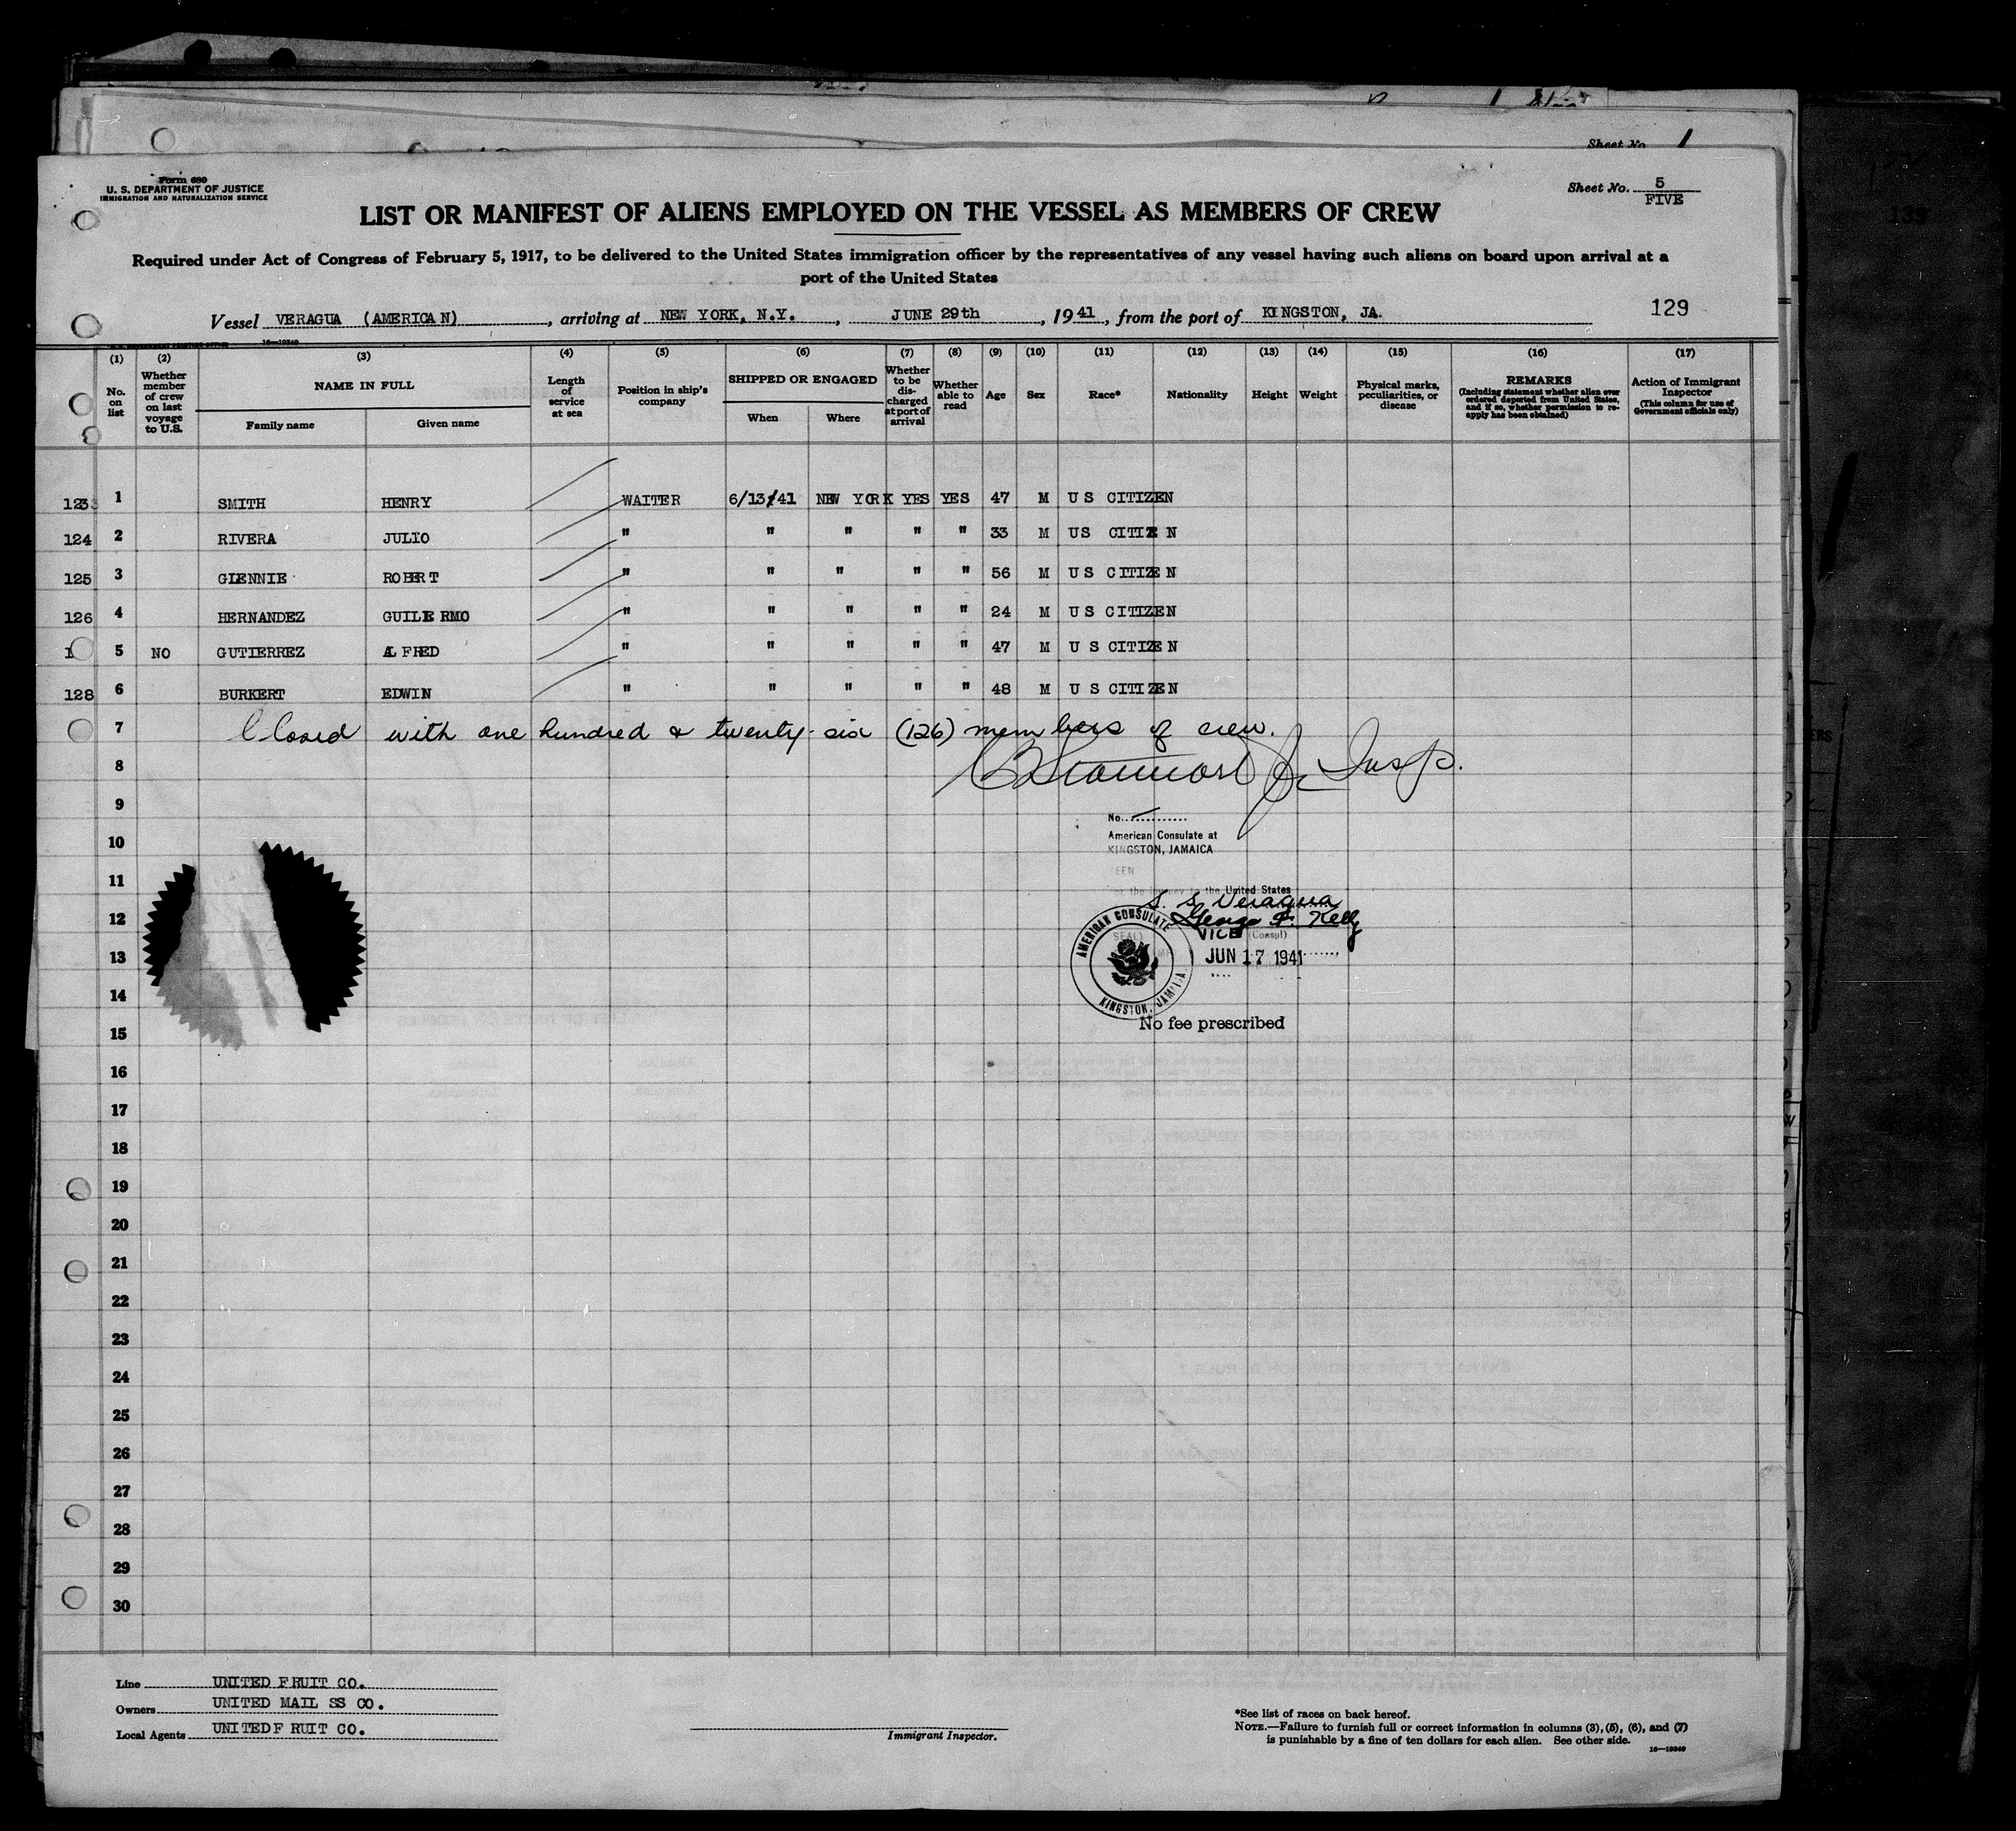 Sheet No. 1
Form 680
U. S. DEPARTMENT OF JUSTICE
IMMIGRATION AND NATURALIZATION SERVICE
Sheet No. 5
FIVE
LIST OR MANIFEST OF ALIENS EMPLOYED ON THE VESSEL AS MEMBERS OF CREW
Required under Act of Congress of February 5, 1917, to be delivered to the United States immigration officer by the representatives of any vessel having such aliens on board upon arrival at a
port of the United States
Vessel VERAGUA (AMERICAN), arriving at NEW YORK, N.Y., JUNE 29th, 1941, from the port of KINGSTON, JA.
129
16—19349
(1) (2) (3) (4) (5) (6) (7) (8) (9) (10) (11) (12) (13) (14) (15) (16) (17)
No. on list
Whether member of crew on last voyage to U.S.
NAME IN FULL
Family name
Given name
Length of service at sea
Position in ship's company
SHIPPED OR ENGAGED
When
Where
Whether to be discharged at port of arrival
Whether able to read
Age
Sex
Race*
Nationality
Height
Weight
Physical marks, peculiarities, or disease
REMARKS
(Including statement whether alien ever ordered deported from United States, and if so, whether permission to reapply has been obtained)
Action of Immigrant Inspector
(This column for use of Government officials only)
123 1 SMITH HENRY WAITER 6/13/41 NEW YORK YES YES 47 M U S CITIZEN
124 2 RIVERA JULIO " " " " " 33 M US CITIZEN
125 3 GLENNIE ROBERT " " " " " 56 M U S CITIZEN
126 4 HERNANDEZ GUILERMO " " " " " 24 M U S CITIZEN
1 5 NO GUTIERREZ ALFRED " " " " " 47 M U S CITIZEN
128 6 BURKERT EDWIN " " " " " 48 M U S CITIZEN
7 Closed with one hundred & twenty-six (126) members of crew.
8 Jr Insp.
9
No.
10 American Consulate at
KINGSTON, JAMAICA
11 EEN
For the journey to the United States
12 S. S. Veragua
George F. Kelly
VICE (Consul)
AMERICAN CONSULATE
SEAL
13 JUN 17 1941
14
KINGSTON, JAMAICA
15 No fee prescribed
16
17
18
19
20
21
22
23
24
25
26
27
28
29
30
Line UNITED FRUIT CO.
Owners UNITED MAIL SS CO.
Local Agents UNITED FRUIT CO.
Immigrant Inspector.
*See list of races on back hereof.
NOTE.—Failure to furnish full or correct information in columns (3), (5), (6), and (7)
is punishable by a fine of ten dollars for each alien. See other side.
16—19349